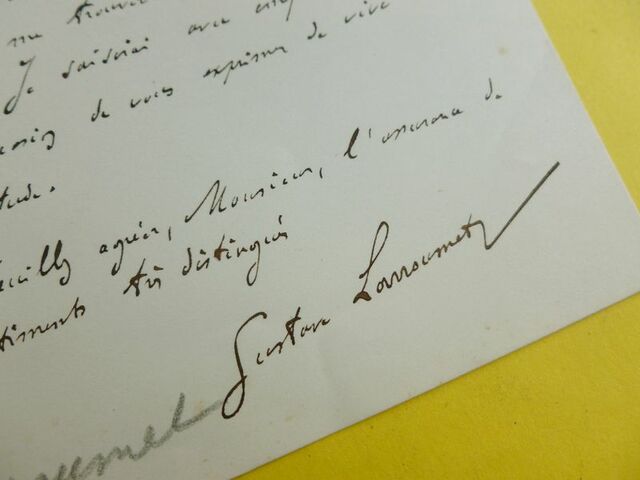 me trouver
Je saisirai avec
de vous exprimer de vive
tude.
Veuillez agréer, Monsieur, l'assurance de
timents très distingués
Gustave Larroumet
oumet